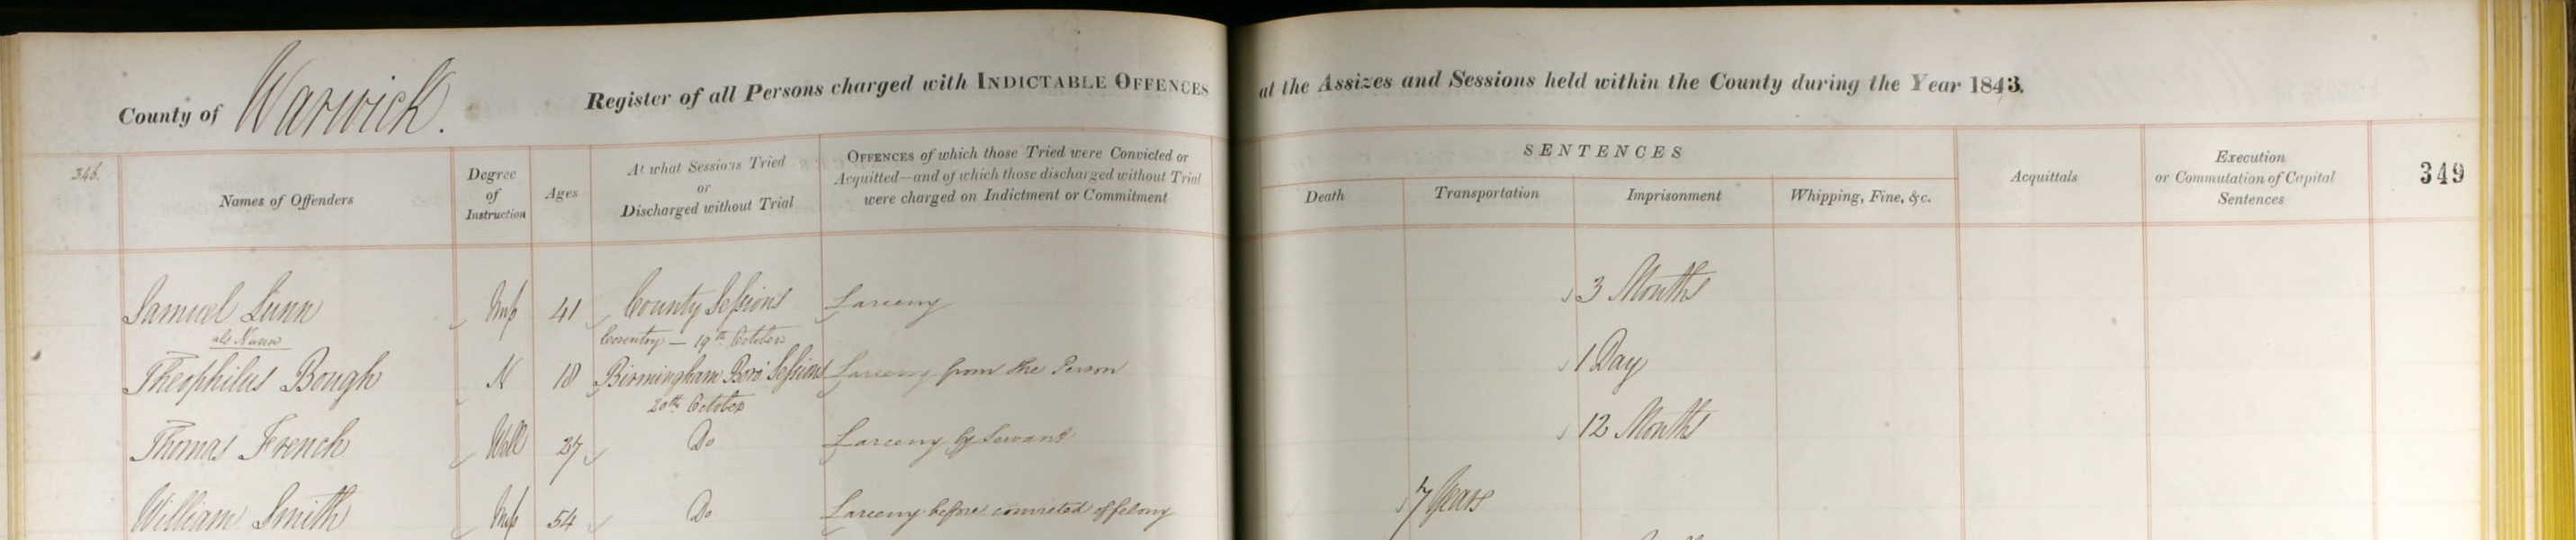 County of Warwick.
Register of all Persons charged with INDICTABLE OFFENCES at the Assizes and Sessions held within the County during the Year 1843.
346.
Names of Offenders
Degree
of
Instruction
Ages
At what Sessions Tried
or
Discharged without Trial
OFFENCES of which those Tried were Convicted or
Acquitted—and of which those discharged without Trial
were charged on Indictment or Commitment
SENTENCES
Death
Transportation
Imprisonment
Whipping, Fine, &c.
Acquittals
Execution
or Commutation of Capital
Sentences
349
Samuel Lunn Imp 41 County Sessions Larceny 3 Months
als Nunn Coventry — 19th October
Theophilus Bough N 18 Birmingham Boro' Sessions Larceny from the Person 1 Day
20th October
Thomas French Well 37 Do Larceny by Servant 12 Months
William Smith Imp 54 Do Larceny before convicted of felony 7 Years